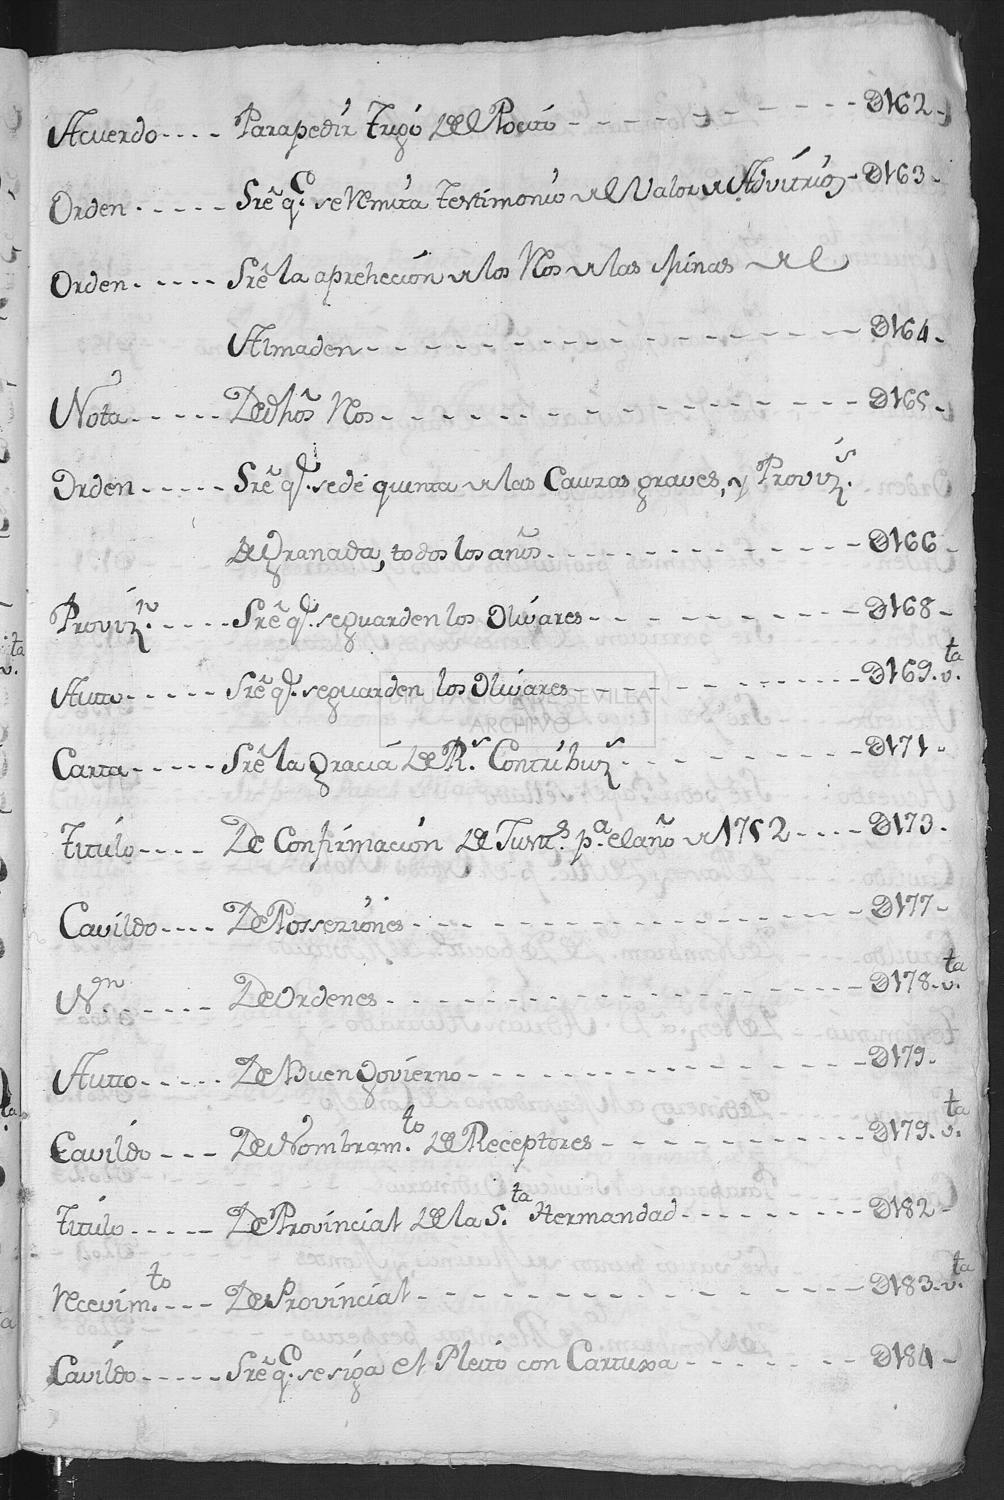 Acuerdo---- Para pedir Trigo del Pocito - - - - - - D162-
Orden ----- Sre. q.e se Remita testimonio del Valor de Advitrios - D163-
Orden ----- Sre la aprehección de los Reos de las Minas del
Almaden - - - - - - - - - - D164-
Nota ----- De dhos Reos - - - - - - - - - - D165-
Orden ----- Sre. q.e se dé quenta de las Cauzas graves, y Proviz.s
de Granada, todos los años - - - - - - - - D166-
Proviz.n ----- Sre. q.e se guarden los Olivares - - - - - - - D168-
Autto ----- Sre. q.e se guarden los Olivares - - - - - - D169. v.ta
DIPUTACION DE SEVILLA
ARCHIVO
Carta ----- Sre la gracia de R.s Contribuz.s - - - - - - D171-
Titulo ---- De Confirmacion de Justt.s p.a el año de 1752 ---- D173.
Cavildo ---- De Posseziones - - - - - - - - - - D177-
N.on ------ De Ordenes - - - - - - - - - - D178. v.ta
Autto ----- De Buen govierno - - - - - - - - - D179.
Cavildo --- De Nombram.to de Receptores - - - - - - D179. v.ta
Titulo ----- De Provincial de la S.ta Hermandad - - - - - - D182-
Recevim.to --- De Provincial - - - - - - - - - - D183. v.ta
Cavildo ----- Sre. q.e se siga el Pleito con Cartuxa - - - - - D184-